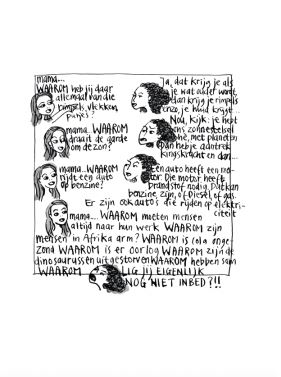 mama...
WAAROM heb jij daar
allemaal van die
rimpels, vlekken,
putjes?
Ja, dat krijg je als
je wat ouder wordt,
dan krijg je rimpels
enzo, je huid krijgt...
mama... WAAROM
draait de aarde
om de zon?
Nou, kijk: je hebt
ons zonnestelsel
met planeten en
dan heb je
kracht en dan...
mama... WAAROM
rijdt een auto
op benzine?
Een auto heeft een mo-
tor. Die motor heeft
brandstof nodig. Dit kan
benzine zijn, of diesel, of gas.
Er zijn ook auto's die rijden op elektri-
citeit
mama... WAAROM moeten mensen
altijd naar hun werk WAAROM zijn
mensen in Afrika arm? WAAROM is cola onge-
zond WAAROM is er oorlog WAAROM zijn de
dinosaurussen uitgestorven WAAROM hebben
WAAROM LIG JIJ EIGENLIJK
NOG NIET IN BED?!!